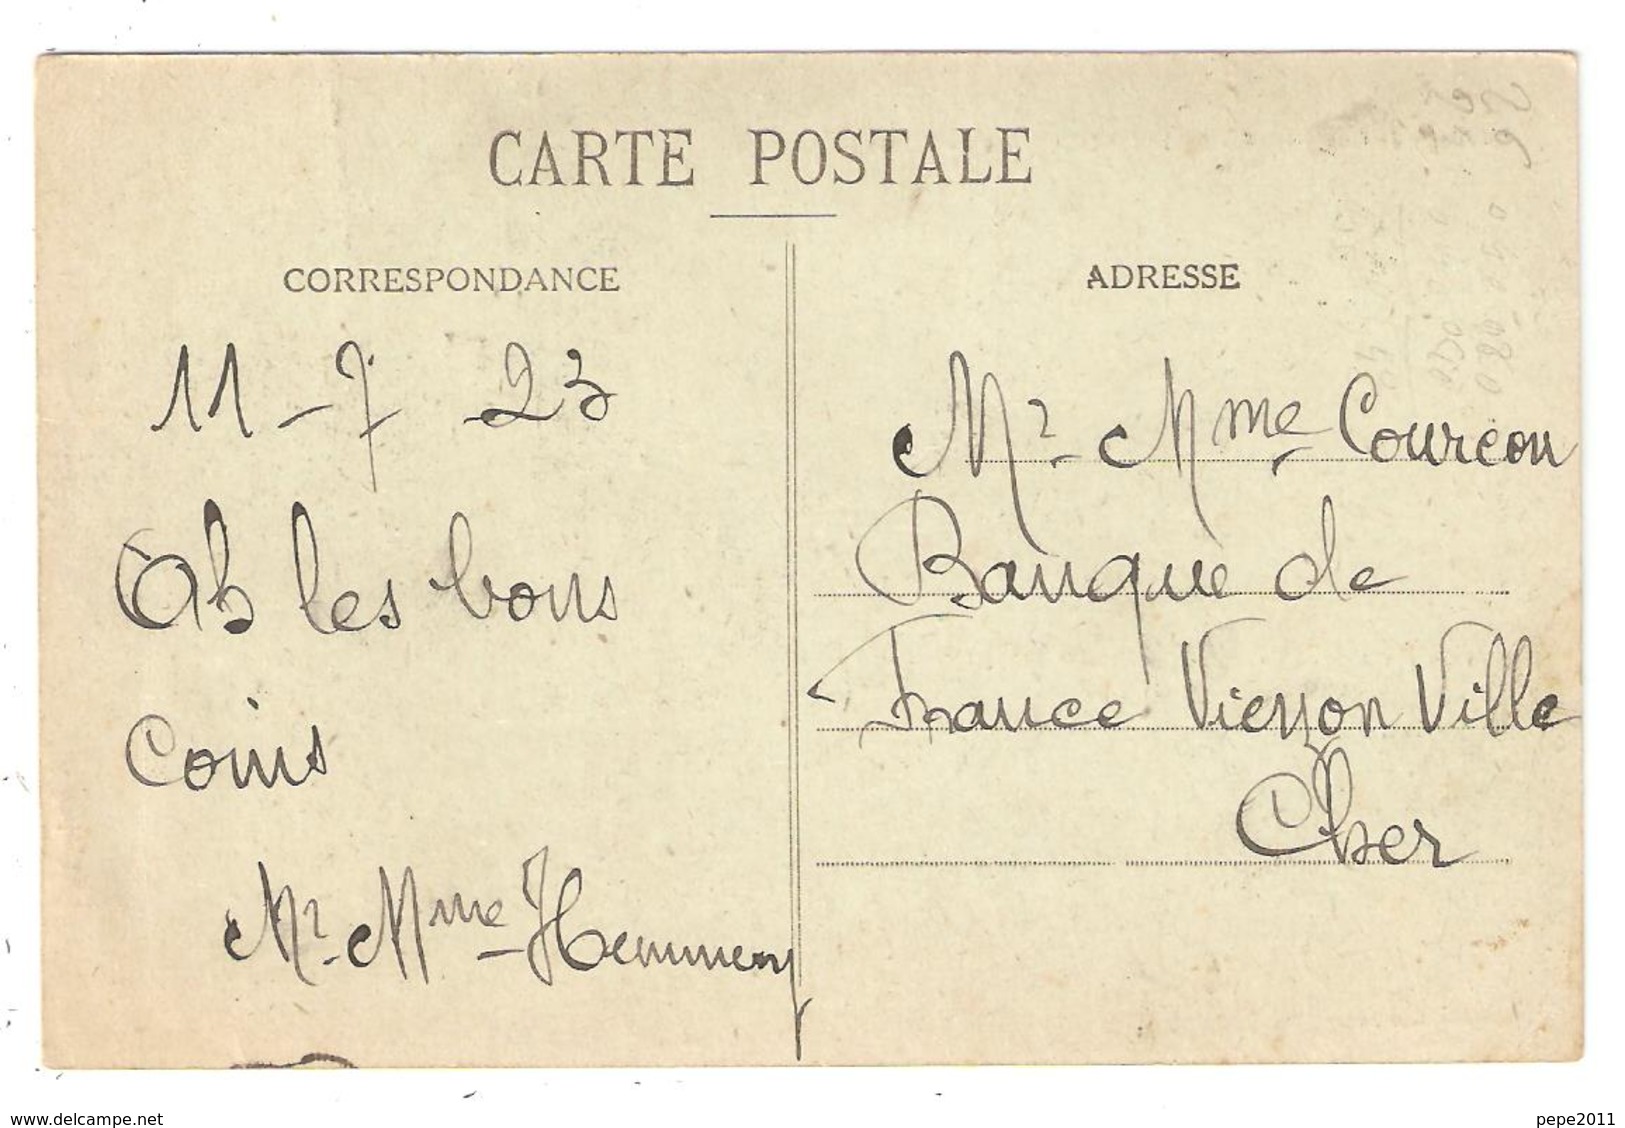 CARTE POSTALE
CORRESPONDANCE
11 - 7 23
Ah les bons
Coins
Mr. Mme Hemmery
ADRESSE
Mr. Mme Courcou
Banque de
France Vierzon Ville
Cher
www.delcampe.net
pepe2011